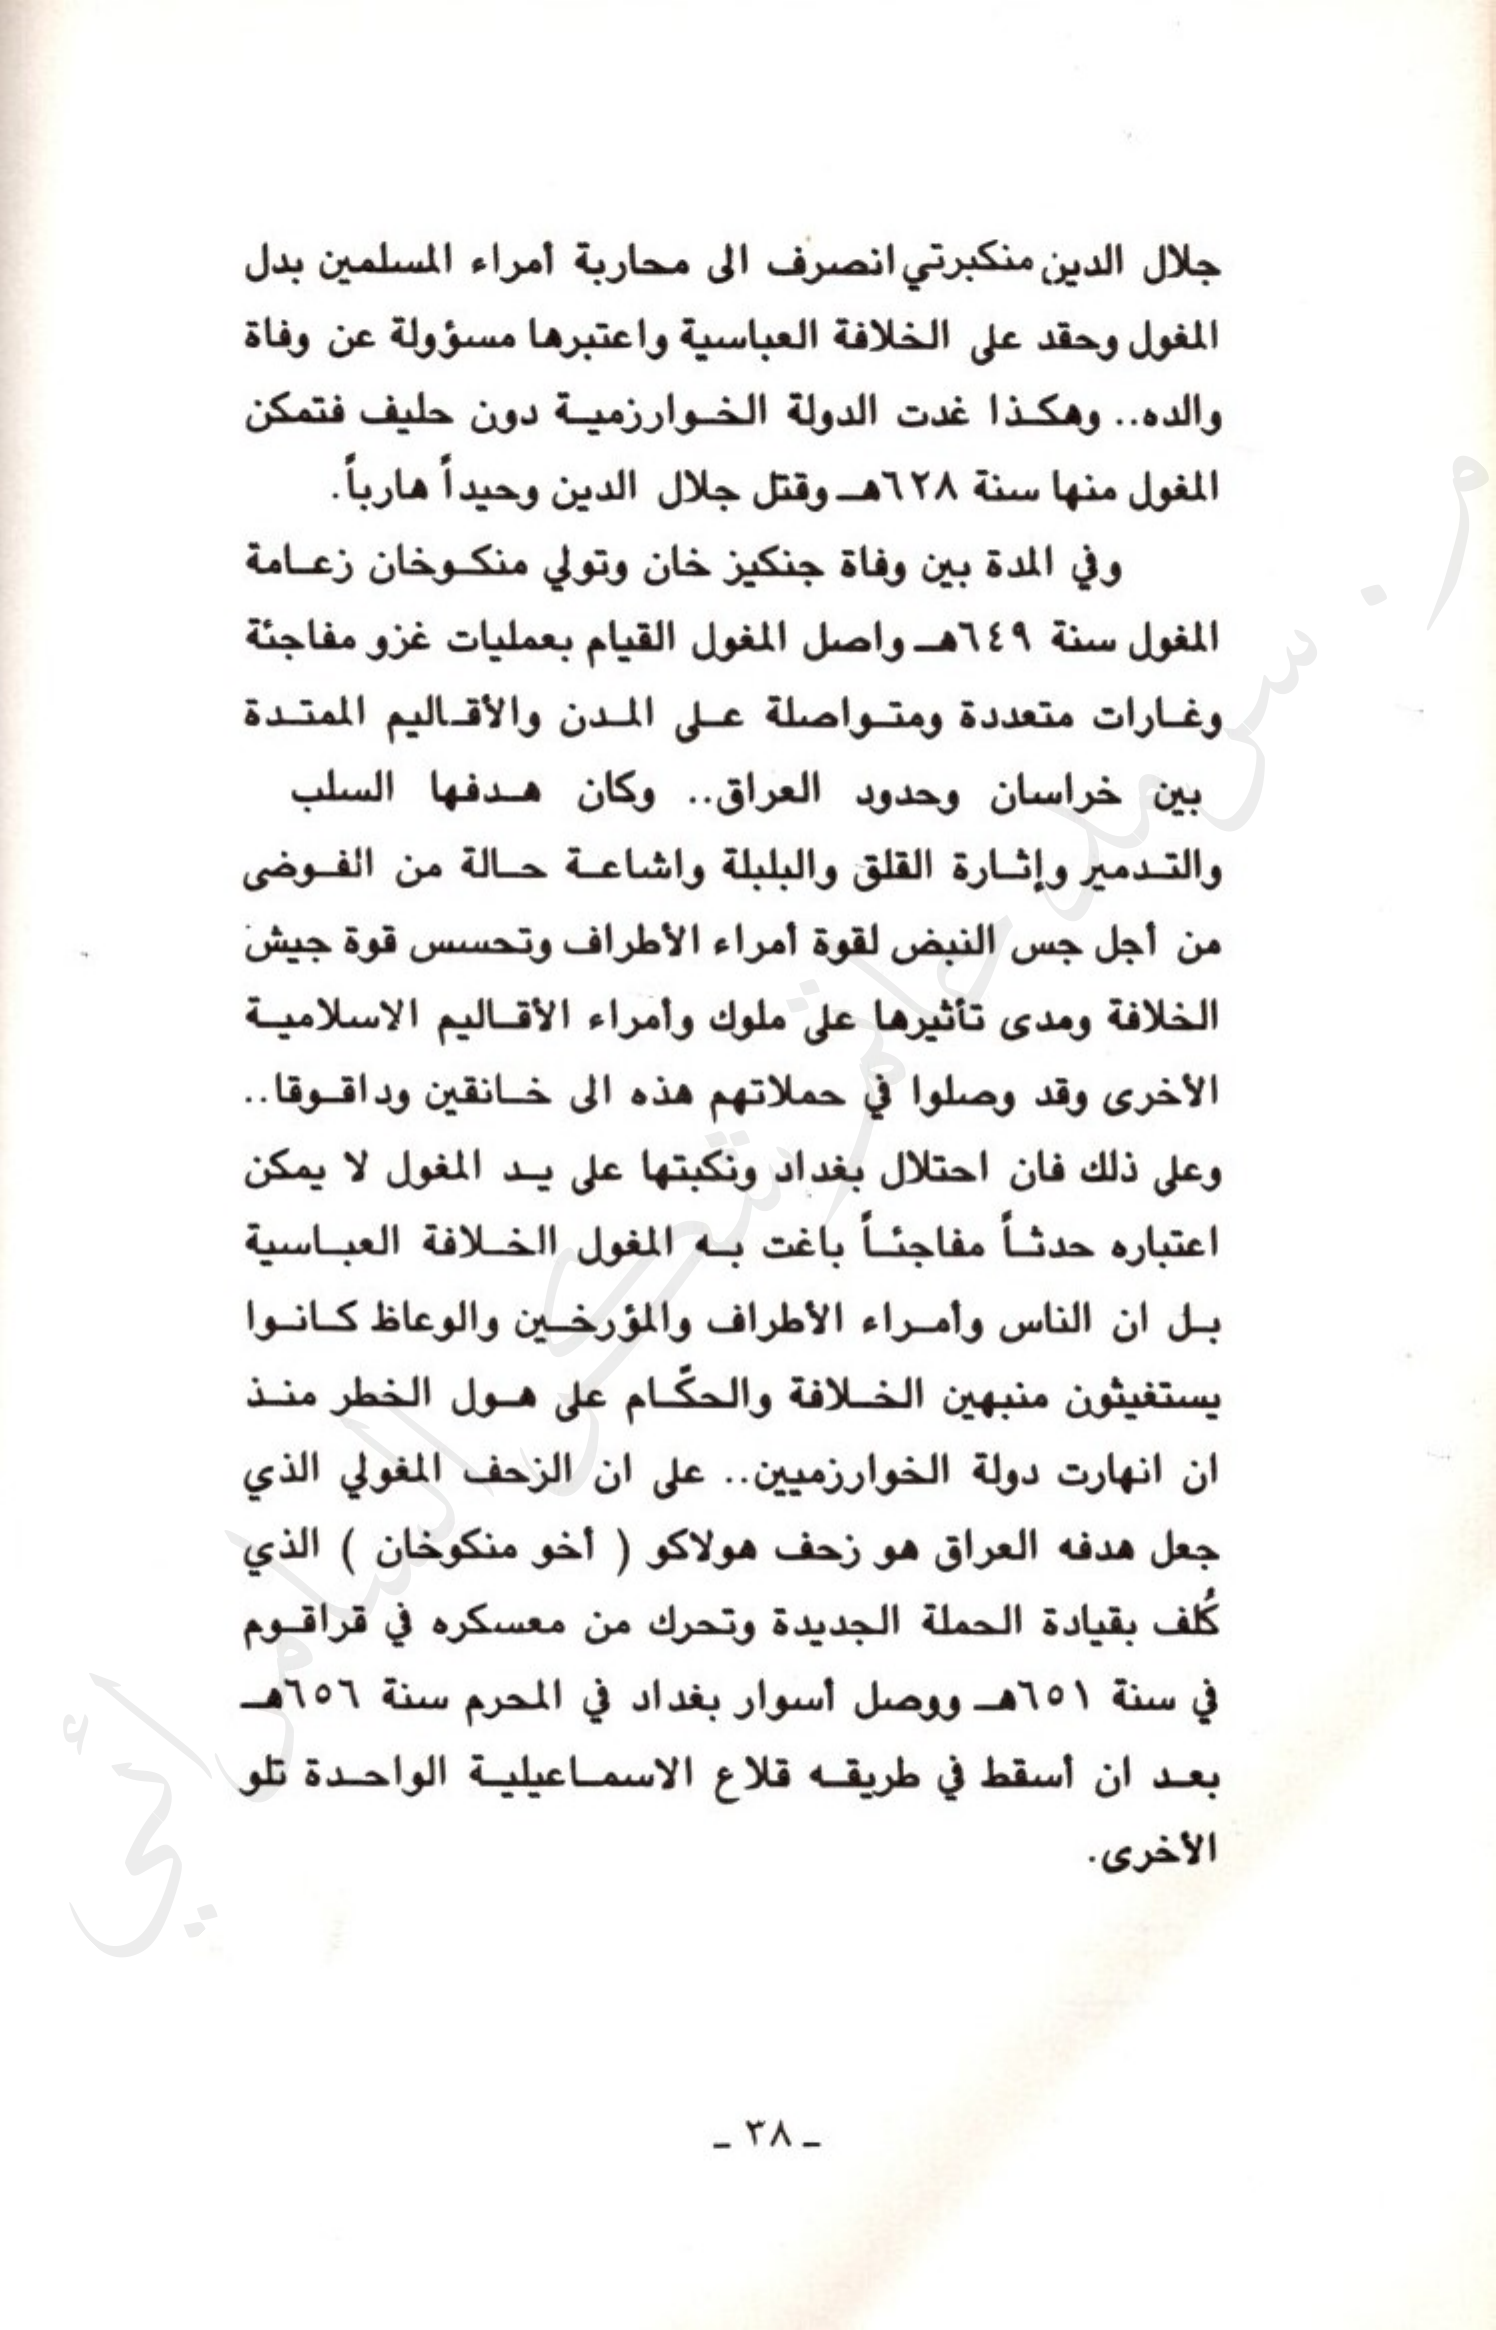 جلال الدين منكبرتي انصرف الى محاربة أمراء المسلمين بدل
المغول وحقد على الخلافة العباسية واعتبرها مسؤولة عن وفاة
والده.. وهكذا غدت الدولة الخوارزمية دون حليف فتمكن
المغول منها سنة ٦٢٨هـ وقتل جلال الدين وحيداً هارباً.
وفي المدة بين وفاة جنكيز خان وتولي منكوخان زعامة
المغول سنة ٦٤٩هـ واصل المغول القيام بعمليات غزو مفاجئة
وغارات متعددة ومتواصلة على المدن والأقاليم الممتدة
بين خراسان وحدود العراق.. وكان هدفها السلب
والتدمير وإثارة القلق والبلبلة واشاعة حالة من الفوضى
من أجل جس النبض لقوة أمراء الأطراف وتحسس قوة جيش
الخلافة ومدى تأثيرها على ملوك وأمراء الأقاليم الاسلامية
الأخرى وقد وصلوا في حملاتهم هذه الى خانقين وداقوقا..
وعلى ذلك فان احتلال بغداد ونكبتها على يد المغول لا يمكن
اعتباره حدثاً مفاجئاً باغت به المغول الخلافة العباسية
بل ان الناس وأمراء الأطراف والمؤرخين والوعاظ كانوا
يستغيثون منبهين الخلافة والحكّام على هول الخطر منذ
ان انهارت دولة الخوارزميين.. على ان الزحف المغولي الذي
جعل هدفه العراق هو زحف هولاكو ( أخو منكوخان ) الذي
كُلف بقيادة الحملة الجديدة وتحرك من معسكره في قراقوم
في سنة ٦٥١هـ ووصل أسوار بغداد في المحرم سنة ٦٥٦هـ
بعد ان أسقط في طريقه قلاع الاسماعيلية الواحدة تلو
الأخرى.
ـ ٣٨ ـ